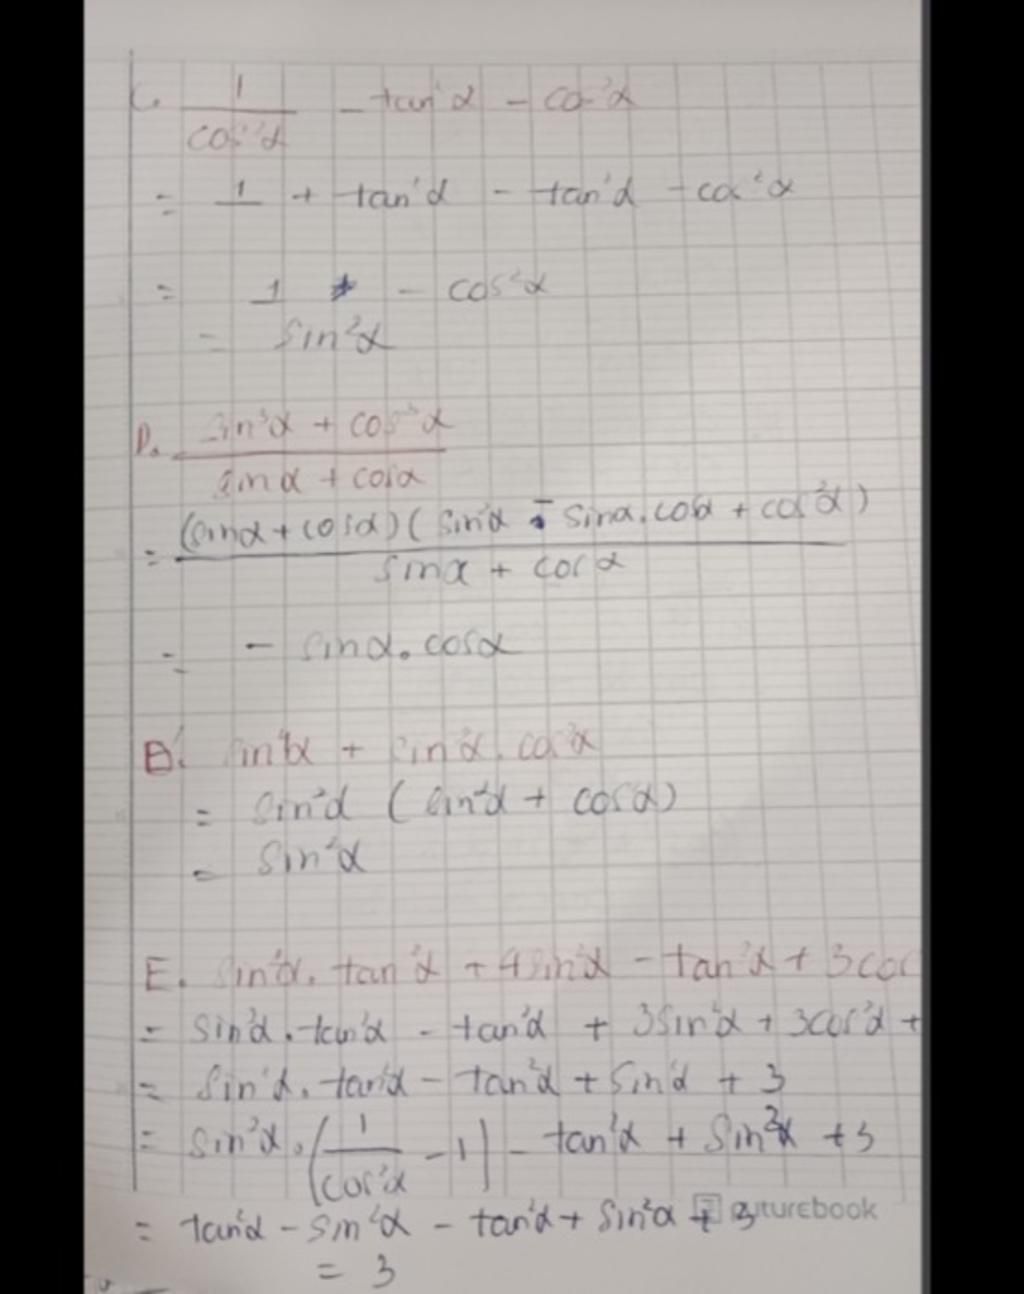 C. 1/cos²α - tan²α - cos²α
= 1 + tan²α - tan²α - cos²α
= 1 - cos²α
= sin²α
D. (sin³α + cos³α)/(sinα + cosα)
= (sinα + cosα)(sin²α - sinα.cosα + cos²α)/(sinα + cosα)
= - sinα.cosα
B. sin⁴α + sin²α.cos²α
= sin²α (sin²α + cos²α)
= sin²α
E. sin²α. tan²α + 4sin²α - tan²α + 3cos
= sin²α.tan²α - tan²α + 3sin²α + 3cos²α +
= sin²α. tan²α - tan²α + sin²α + 3
= sin²α.(1/cos²α - 1) - tan²α + sin²α + 3
= tan²α - sin²α - tan²α + sin²α + 3
= 3